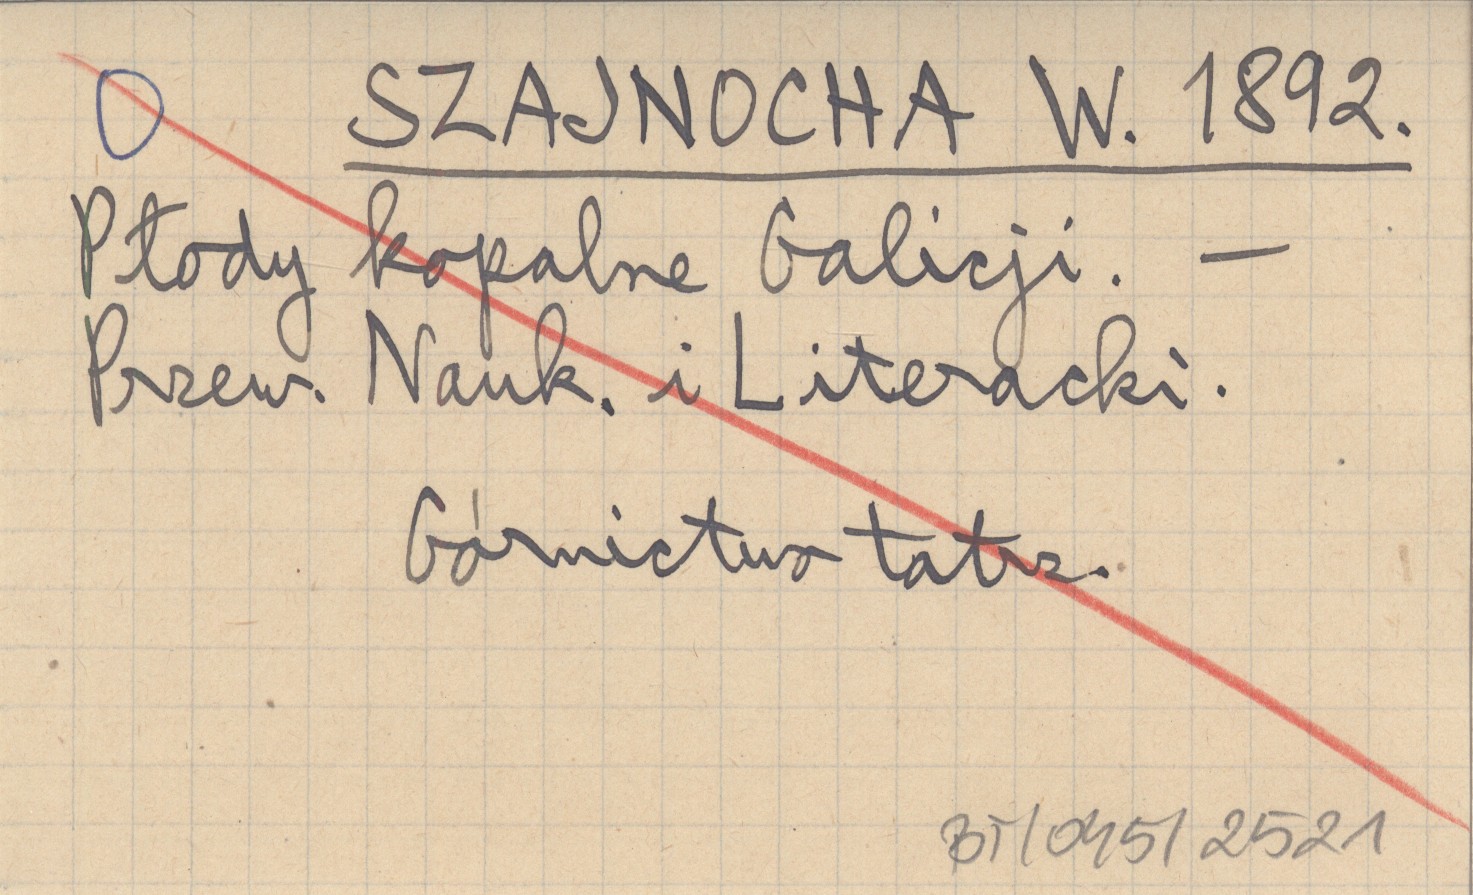 O SZAJNOCHA W. 1892.
Płody kopalne Galicji. —
Przew. Nauk. i Literacki.
Górnictwo tatrz.
BT/045/2521